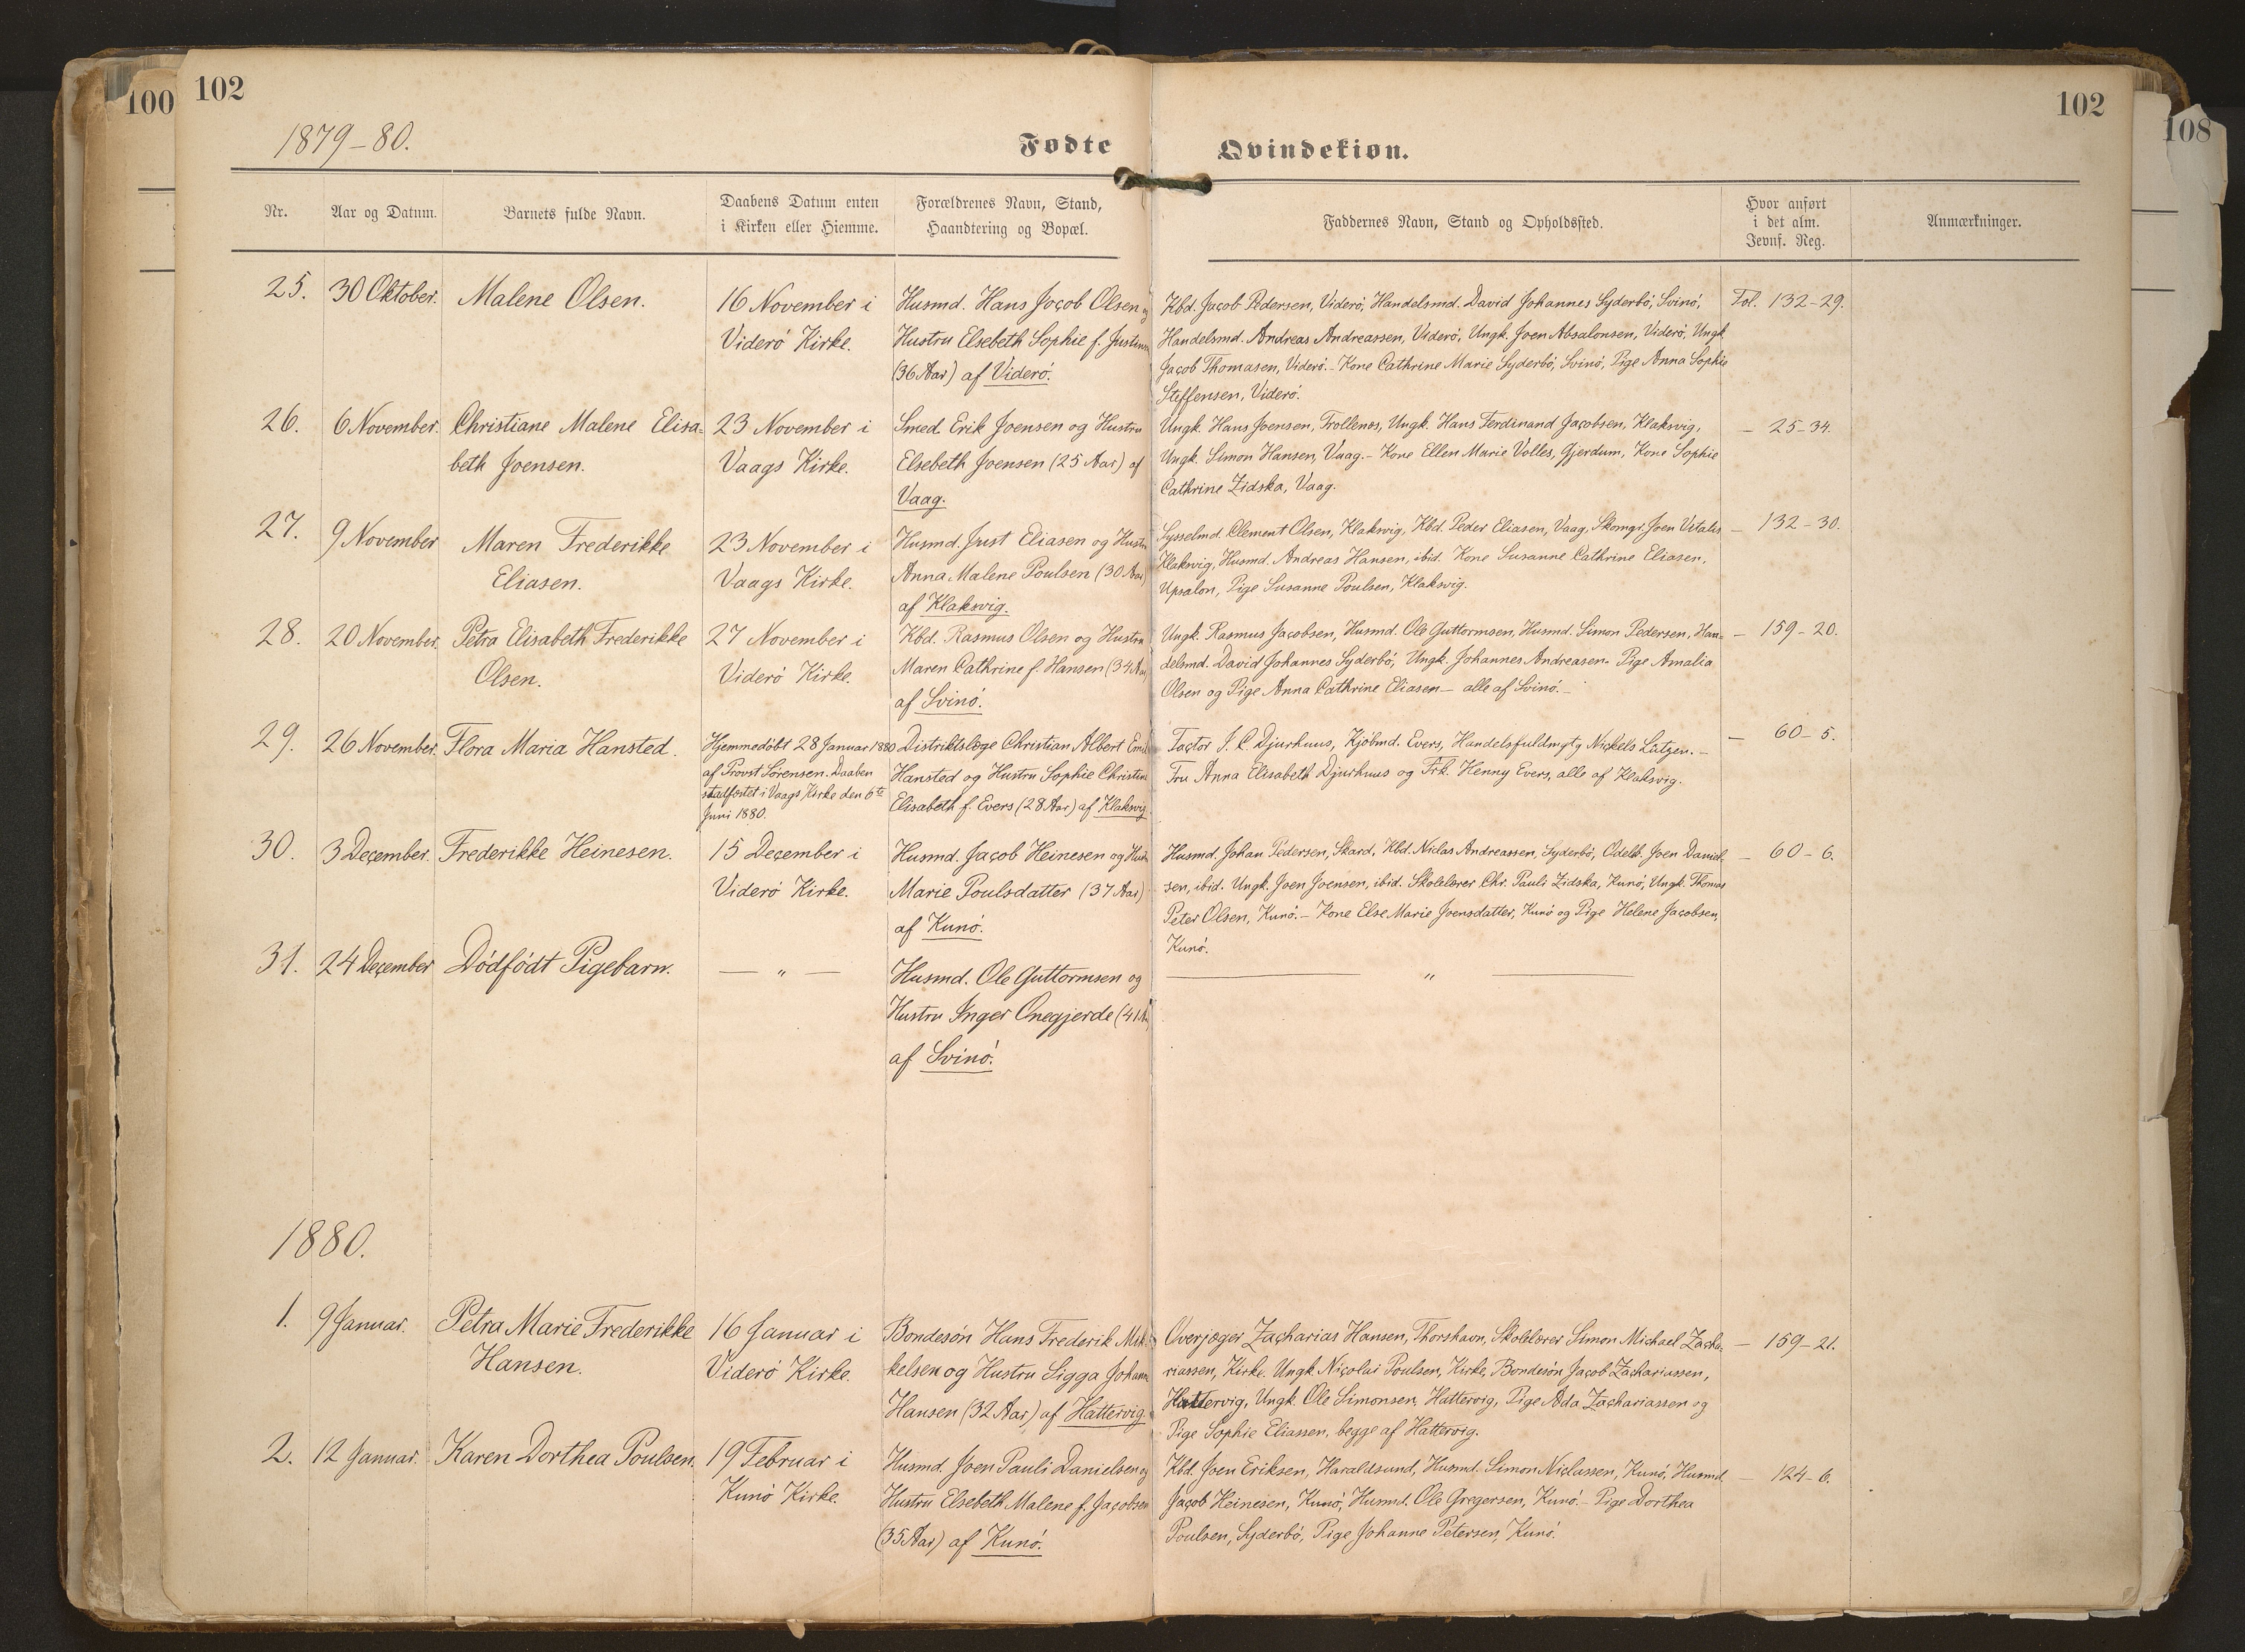 100
102
102
108
1879-80.
Fødte
Qvindekiøn.
Nr.
Aar og Datum.
Barnets fulde Navn.
Daabens Datum enten
i Kirken eller Hiemme.
Forældrenes Navn, Stand,
Haandtering og Bopæl.
Faddernes Navn, Stand og Opholdssted.
Hvor anført
i det alm.
Jevnf. Reg.
Anmærkninger.
25.
30 Oktober.
Malene Olsen.
16 November i
Viderö Kirke.
Husmd. Hans Jacob Olsen og
Hustru Elsebeth Sophie f. Justinus
(36 Aar) af Viderö.
Kbd. Jacob Pedersen, Viderö, Handelsmd. David Johannes Syderbö, Svinö,
Handelsmd. Andreas Andreassen, Viderö, Ungk. Joen Absalonsen, Viderö, Ungk.
Jacob Thomasen, Viderö. - Kone Cathrine Marie Syderbö, Svinö, Pige Anna Sophie
Steffensen, Viderö.
Fol. 132-29.
26.
6 November.
Christiane Malene Elisa-
beth Joensen.
23 November i
Vaags Kirke.
Smed Erik Joensen og Hustru
Elsebeth Joensen (25 Aar) af
Vaag.
Ungk. Hans Joensen, Trollenes, Ungk. Hans Ferdinand Jacobsen, Klaksvig,
Ungk. Simon Hansen, Vaag. - Kone Ellen Marie Volles, Gjerdum, Kone Sophie
Cathrine Zidska, Vaag.
- 25-34.
27.
9 November
Maren Frederikke
Eliasen.
23 November i
Vaags Kirke.
Husmd. Just Eliasen og Hustru
Anna Malene Poulsen (30 Aar)
af Klaksvig.
Sysselmd. Clement Olsen, Klaksvig, Kbd. Peder Eliasen, Vaag, Skomgr. Joen Vitalis
Klaksvig, Husmd. Andreas Hansen, ibid. Kone Susanne Cathrine Eliasen,
Upsalon, Pige Susanne Poulsen, Klaksvig.
- 132-30.
28.
20 November.
Petra Elisabeth Frederikke
Olsen.
27 November i
Viderö Kirke.
Kbd. Rasmus Olsen og Hustru
Maren Cathrine f. Hansen (34 Aar)
af Svinö.
Ungk. Rasmus Jacobsen, Husmd. Ole Guttormsen, Husmd. Simon Pedersen, Han-
delsmd. David Johannes Syderbö, Ungk. Johannes Andreasen. Pige Amalia
Olsen og Pige Anna Cathrine Eliasen - alle af Svinö. -
- 159-20.
29.
26 November.
Flora Maria Hansted.
Hjemmedöbt 28 Januar 1880
af Provst Sørensen. Daaben
stadfæstet i Vaags Kirke den 6te
Juni 1880.
Distriktslæge Christian Albert Emil
Hansted og Hustru Sophie Christine
Elisabeth f. Evers (28 Aar) af Klaksvig
Factor J. C. Djurhuus, Kjöbmd. Evers, Handelsfuldmgtg Nickels Lützen. -
Fru Anna Elisabeth Djurhuus og Frk. Henny Evers, alle af Klaksvig.
- 60-5.
30.
3 December.
Frederikke Heinesen.
15 December i
Viderö Kirke.
Husmd. Jacob Heinesen og Hustru
Marie Poulsdatter (37 Aar)
af Kunö.
Husmd. Johan Pedersen, Skard, Kbd. Niclas Andreassen, Syderbö, Odelsb. Joen Daniel-
sen, ibid. Ungk. Joen Joensen, ibid. Skolelærer Chr. Pauli Zidska, Kunö, Ungk. Thomas
Peter Olsen, Kunö. - Kone Else Marie Joensdatter, Kunö og Pige Helene Jacobsen,
Kunö.
- 60-6.
31.
24 December
Dödfödt Pigebarn.
- " -
Husmd. Ole Guttormsen og
Hustru Inger Onegjerde (41 Aar)
af Svinö.
- " -
1880.
1.
9 Januar.
Petra Marie Frederikke
Hansen.
16 Januar i
Viderö Kirke.
Bondesön Hans Frederik Mik-
kelsen og Hustru Sigga Johanne
Hansen (32 Aar) af Hattervig.
Overjæger Zacharias Hansen, Thorshavn, Skolelærer Simon Michael Zacha-
riassen, Kirke, Ungk. Nicolai Poulsen, Kirke, Bondesön Jacob Zachariassen,
Hattervig, Ungk. Ole Simonsen, Hattervig, Pige Ada Zachariassen og
Pige Sophie Eliassen, begge af Hattervig.
- 159-21.
2.
12 Januar.
Karen Dorthea Poulsen.
19 Februar i
Kunö Kirke.
Husmd. Joen Pauli Danielsen og
Hustru Elsebeth Malene f. Jacobsen
(35 Aar) af Kunö.
Kbd. Joen Eriksen, Haraldsund, Husmd. Simon Niclassen, Kunö, Husmd.
Jacob Heinesen, Kunö, Husmd. Ole Gregersen, Kunö. - Pige Dorthea
Poulsen, Syderbö, Pige Johanne Petersen, Kunö.
- 124-6.